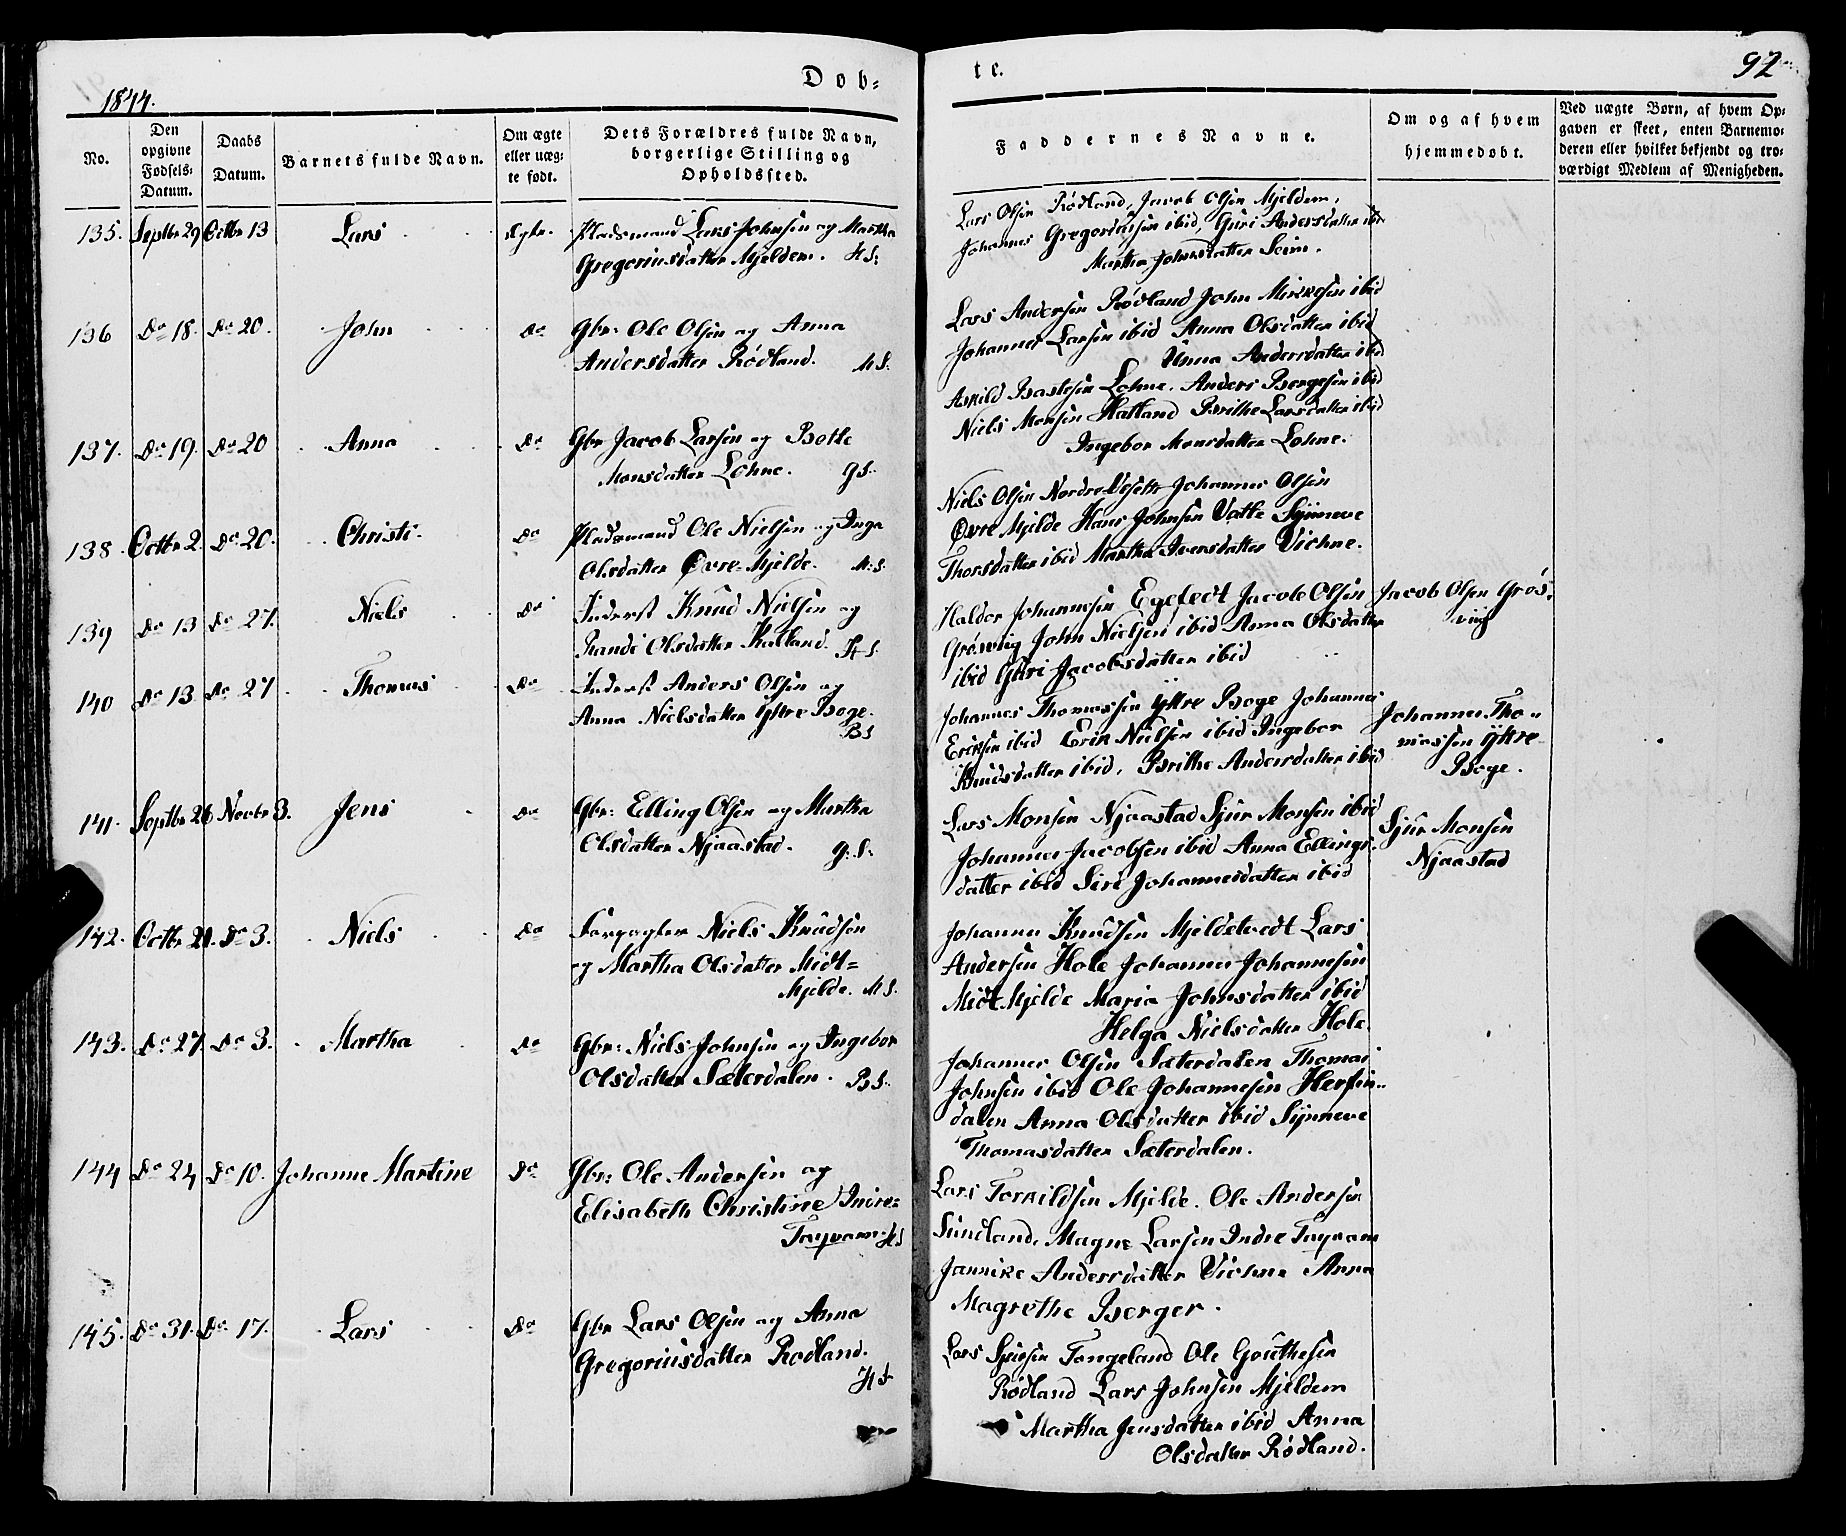 1844.
Døb-
te.
92
No.
Den opgivne Fødsels-Datum.
Daabs Datum.
Barnets fulde Navn.
Om ægte eller uæg-te født.
Dets Forældres fulde Navn, borgerlige Stilling og Opholdssted.
Faddernes Navne.
Om og af hvem hjemmedøbt.
Ved uægte Børn, af hvem Op-
gaven er skeet, enten Barnemo-
deren eller hvilket bekjendt og tro-
værdigt Medlem af Menigheden.
135. Septbr 29 Octbr 13 Lars Ægte. Pladsmand Lars Johnsen og Martha
Gregoriusdatter Mjeldem. H S:
Lars Olsen Rødland, Jacob Olsen Mjeldem,
Johannes Gregoriussen ibid, Guri Andersdatter ibid
Martha Johnsdatter Seim.
136 Do 18. Do 20. John Do Gbr: Ole Olsen og Anna
Andersdatter Rødland. M S.
Lars Andersen Rødland John Mikkelsen ibid
Johannes Larsen ibid Anna Olsdatter ibid
Unna Andersdatter ibid
137. Do 19. Do 20 Anna Do Gbr Jacob Larsen og Botle
Monsdatter Lohne. G S.
Askild Baastesen Lohne. Anders Bergesen ibid
Niels Monsen Hatland Brithe Larsdatter ibid
Ingebor Monsdatter Lohne.
138. Octbr 2. Do 20. Christi Do Pladsmand Ole Nielsen og Inga
Olsdatter Øvre-Mjelde. M. S.
Niels Olsen Nordre Johannes Olsen
Øvre Mjelde Hans Johnsen Vatle Synneve
Thorsdatter ibid Martha Iversdatter Vichne.
139 Do 13 Do 27. Niels Do Inderst Knud Nielsen og
Randi Olsdatter Kalland. H S.
Haldor Johannesen Egetvedt Jacob Olsen
Grøsviig John Nielsen ibid Anna Olsdatter
ibid Guri Jacobsdatter ibid
Jacob Olsen Grøs-
viig
140 Do 13. Do 27 Thomas Do Inderst Anders Olsen og
Anna Nielsdatter Yttre Boge.
B S
Johannes Thomassen Yttre Boge Johannes
Eriksen ibid Erik Nielsen ibid Ingebor
Knudsdatter ibid, Brithe Andersdatter ibid
Johannes Tho-
massen Yttre
Boge.
141. Septbr 26 Novbr 3. Jens Do Gbr: Elling Olsen og Martha
Olsdatter Njaastad. G. S.
Lars Monsen Njaastad Sjur Monsen ibid
Johannes Jacobsen ibid Anna Ellings-
datter ibid Siri Johannesdatter ibid
Sjur Monsen
Njaastad
142. Octbr 21. Do 3. Niels Do Forpagter Niels Knudsen
og Martha Olsdatter Midt-
Mjelde. M S.
Johannes Knudsen Mjeldetvedt Lars
Andersen Hole Johannes Johannesen
Midt Mjelde Maria Johnsdatter ibid
Helga Nielsdatter Hole.
143. Do 27. Do 3. Martha Do Gbr: Niels Johnsen og Ingebor
Olsdatter Sæterdalen. B S.
Johannes Olsen Sæterdalen Thomas
Johnsen ibid Ole Johannesen Herfin-
dalen Anna Olsdatter ibid Synneve
Thomasdatter Sæterdalen.
144 Do 24 Do 10. Johanne Martine Do Gbr: Ole Andersen og
Elisabeth Christine Indre-
H S
Lars Torkildsen Mjelde. Ole Andersen
Sundland. Magne Larsen Indre
Jannike Andersdatter Vichne Anna
Magrethe Berger.
145. Do 31. Do 17. Lars Do Gbr Lars Olsen og Anna
Gregoriusdatter Rødland.
H S
Lars Sjursen Tangeland Ole Gouthesen
Rødland Lars Johnsen Mjeldem
Martha Jensdatter ibid Anna
Olsdatter Rødland.